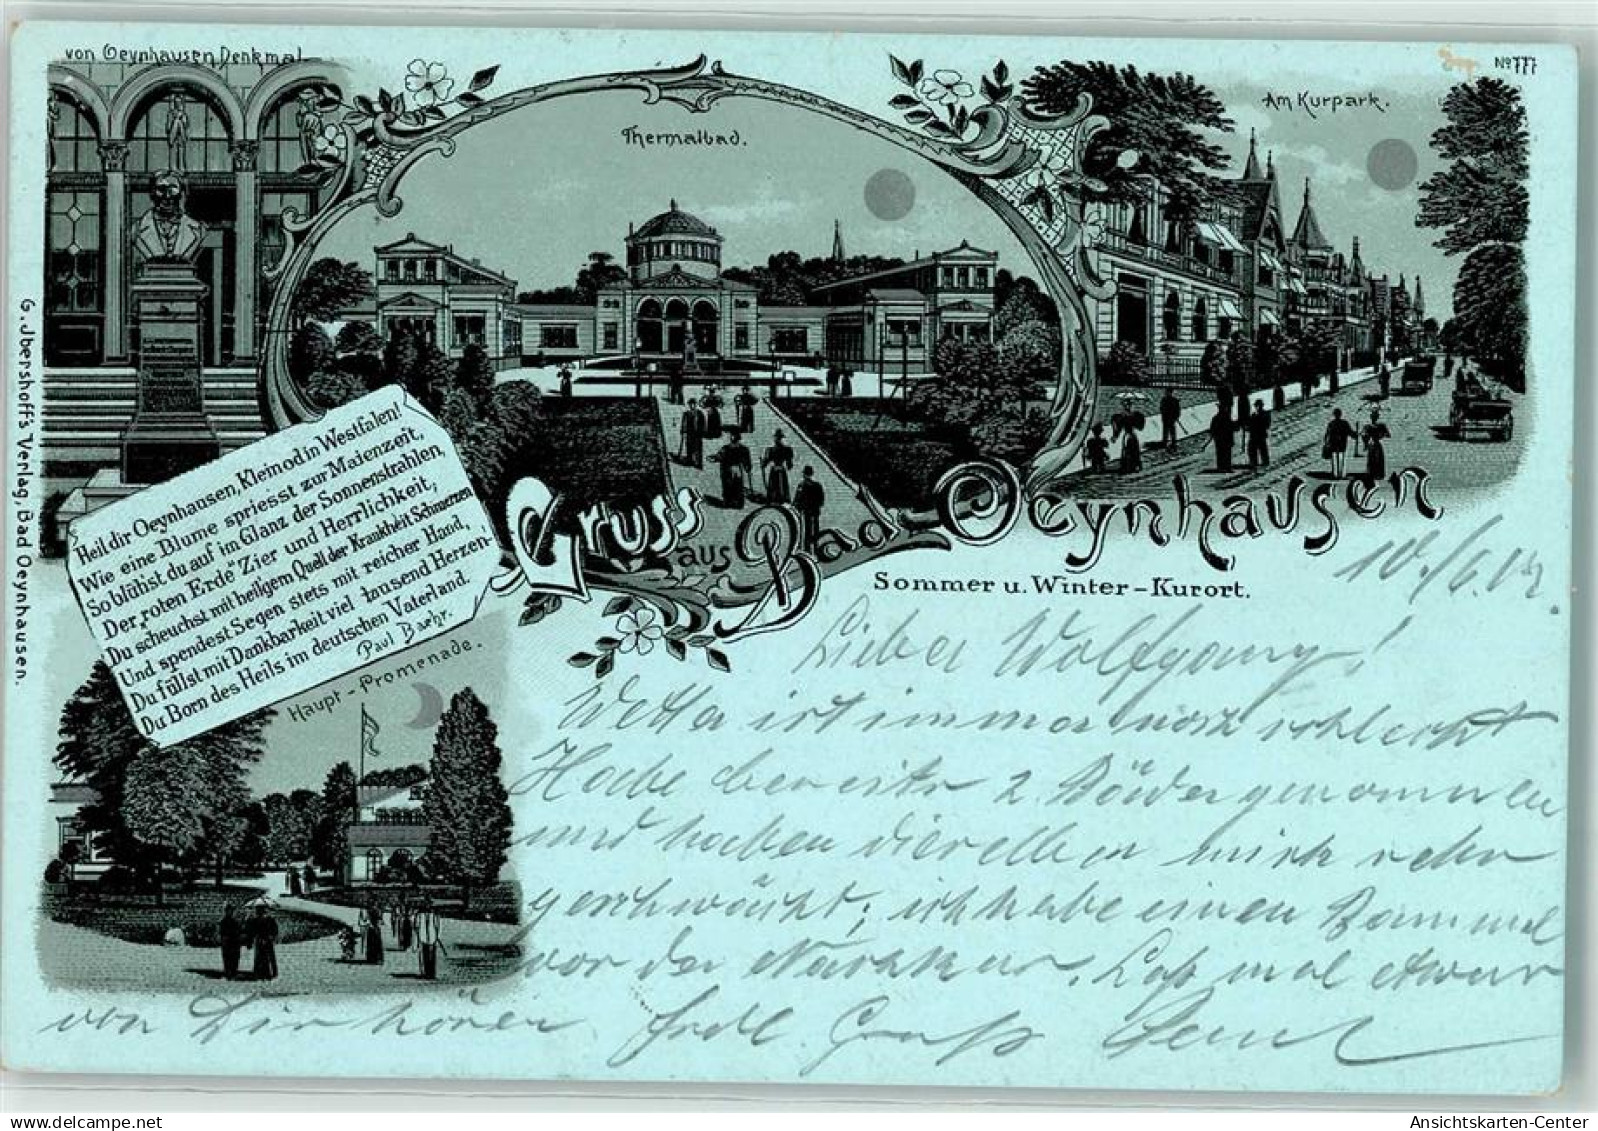 von Oeynhausen Denkmal
Thermalbad.
Am Kurpark.
No 777
Heil dir Oeynhausen, Kleinod in Westfalen!
Wie eine Blume spriesst zur Maienzeit,
So blühst du auf im Glanz der Sonnenstrahlen,
Der „roten Erde“ Zier und Herrlichkeit;
Du scheuchst mit heilgem Quell der Krankheit Schmerzen
Und spendest Segen stets mit reicher Hand,
Du füllst mit Dankbarkeit viel tausend Herzen-
Du Born des Heils im deutschen Vaterland.
Paul Baehr.
Gruss aus Bad Oeynhausen
Sommer u. Winter-Kurort.
Haupt-Promenade.
G. Jbershoff's Verlag, Bad Oeynhausen.
10./6.02.
Lieber Wolfgang!
Wetter ist immer noch schlecht
Habe bereits 2 Bäder genommen
und haben dieselben mich sehr
geschwächt; ich habe einen Bammel
vor der Nachkur. Laß mal etwas
von Dir hören. Frdl. Gruß Paul
AnsichtsKarten-Center.com
Ansichtskarten-Center